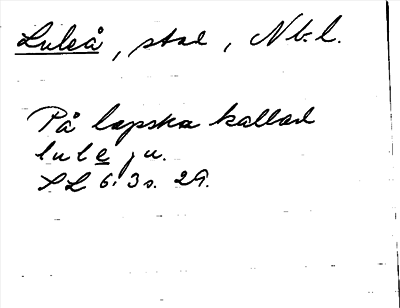 Luleå, stad, Nb.l.
På lapska kallad
lule ju.
SL 6:3 s. 29.